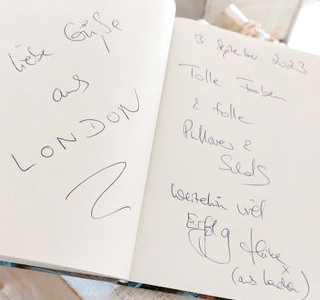 liebe Grüße
aus
LONDON
3 September 2023
Tolle Farben
& tolle
Pullover &
weiterhin viel
Erfolg
(aus London)